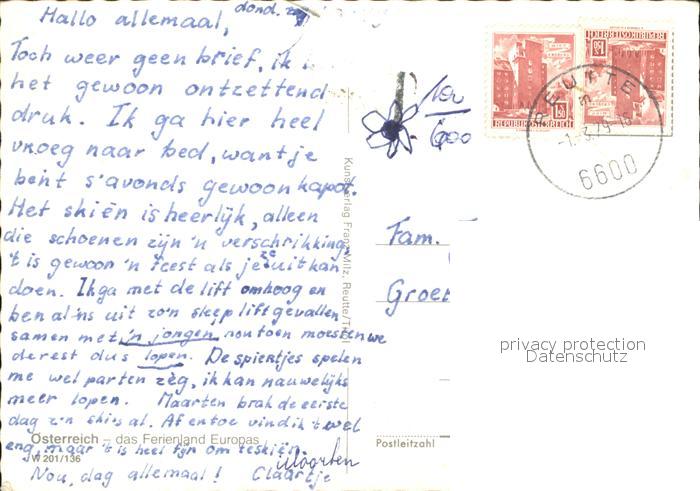 dond.
Hallo allemaal,
Toch weer geen brief, ik
het gewoon ontzettend
druk. Ik ga hier heel
vroeg naar bed, want je
bent s'avonds gewoon kapot.
Het skiën is heerlijk, alleen
die schoenen zijn 'n verschrikking,
't is gewoon 'n feest als je ze uit kan
doen. Ik ga met de lift omhoog en
ben al 'ns uit zo'n sleeplift gevallen
samen met 'n jongen, nou toen moesten we
de rest dus lopen. De spiertjes spelen
me wel parten zèg, ik kan nauwelijks
meer lopen. Maarten brak de eerste
dag z'n ski's al. Af en toe vind ik 't wel
eng, maar 't is heel fijn om te skiën.
Nou, dag allemaal! Claartje
Maarten
Österreich – das Ferienland Europas
W 201/136
Kunstverlag Franz Milz, Reutte/Tirol
REPUBLIK ÖSTERREICH
1.50
REPUBLIK ÖSTERREICH
1.50
REUTTE
6600
Fam.
Groe
privacy protection
Datenschutz
Postleitzahl